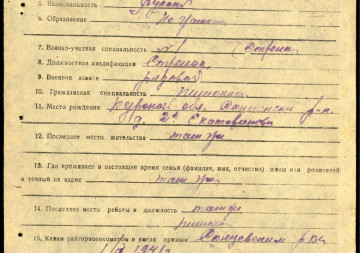 5. Национальность Русский
6. Образование
7. Военно-учетная специальность №1 (Стрелк.
8. Должностная квалификация Стрелок
9. Воинское звание рядовой
10. Гражданская специальность
11. Место рождения Курской обл.
12. Последнее место жительства там же
13. Где проживает в настоящее время семья (фамилия, имя, отчество) жены или родителей
и точный их адрес там же
14. Последнее место работы и должность там же
15. Каким райгорвоенкоматом и когда призван Солнцевским р.
1941 г.